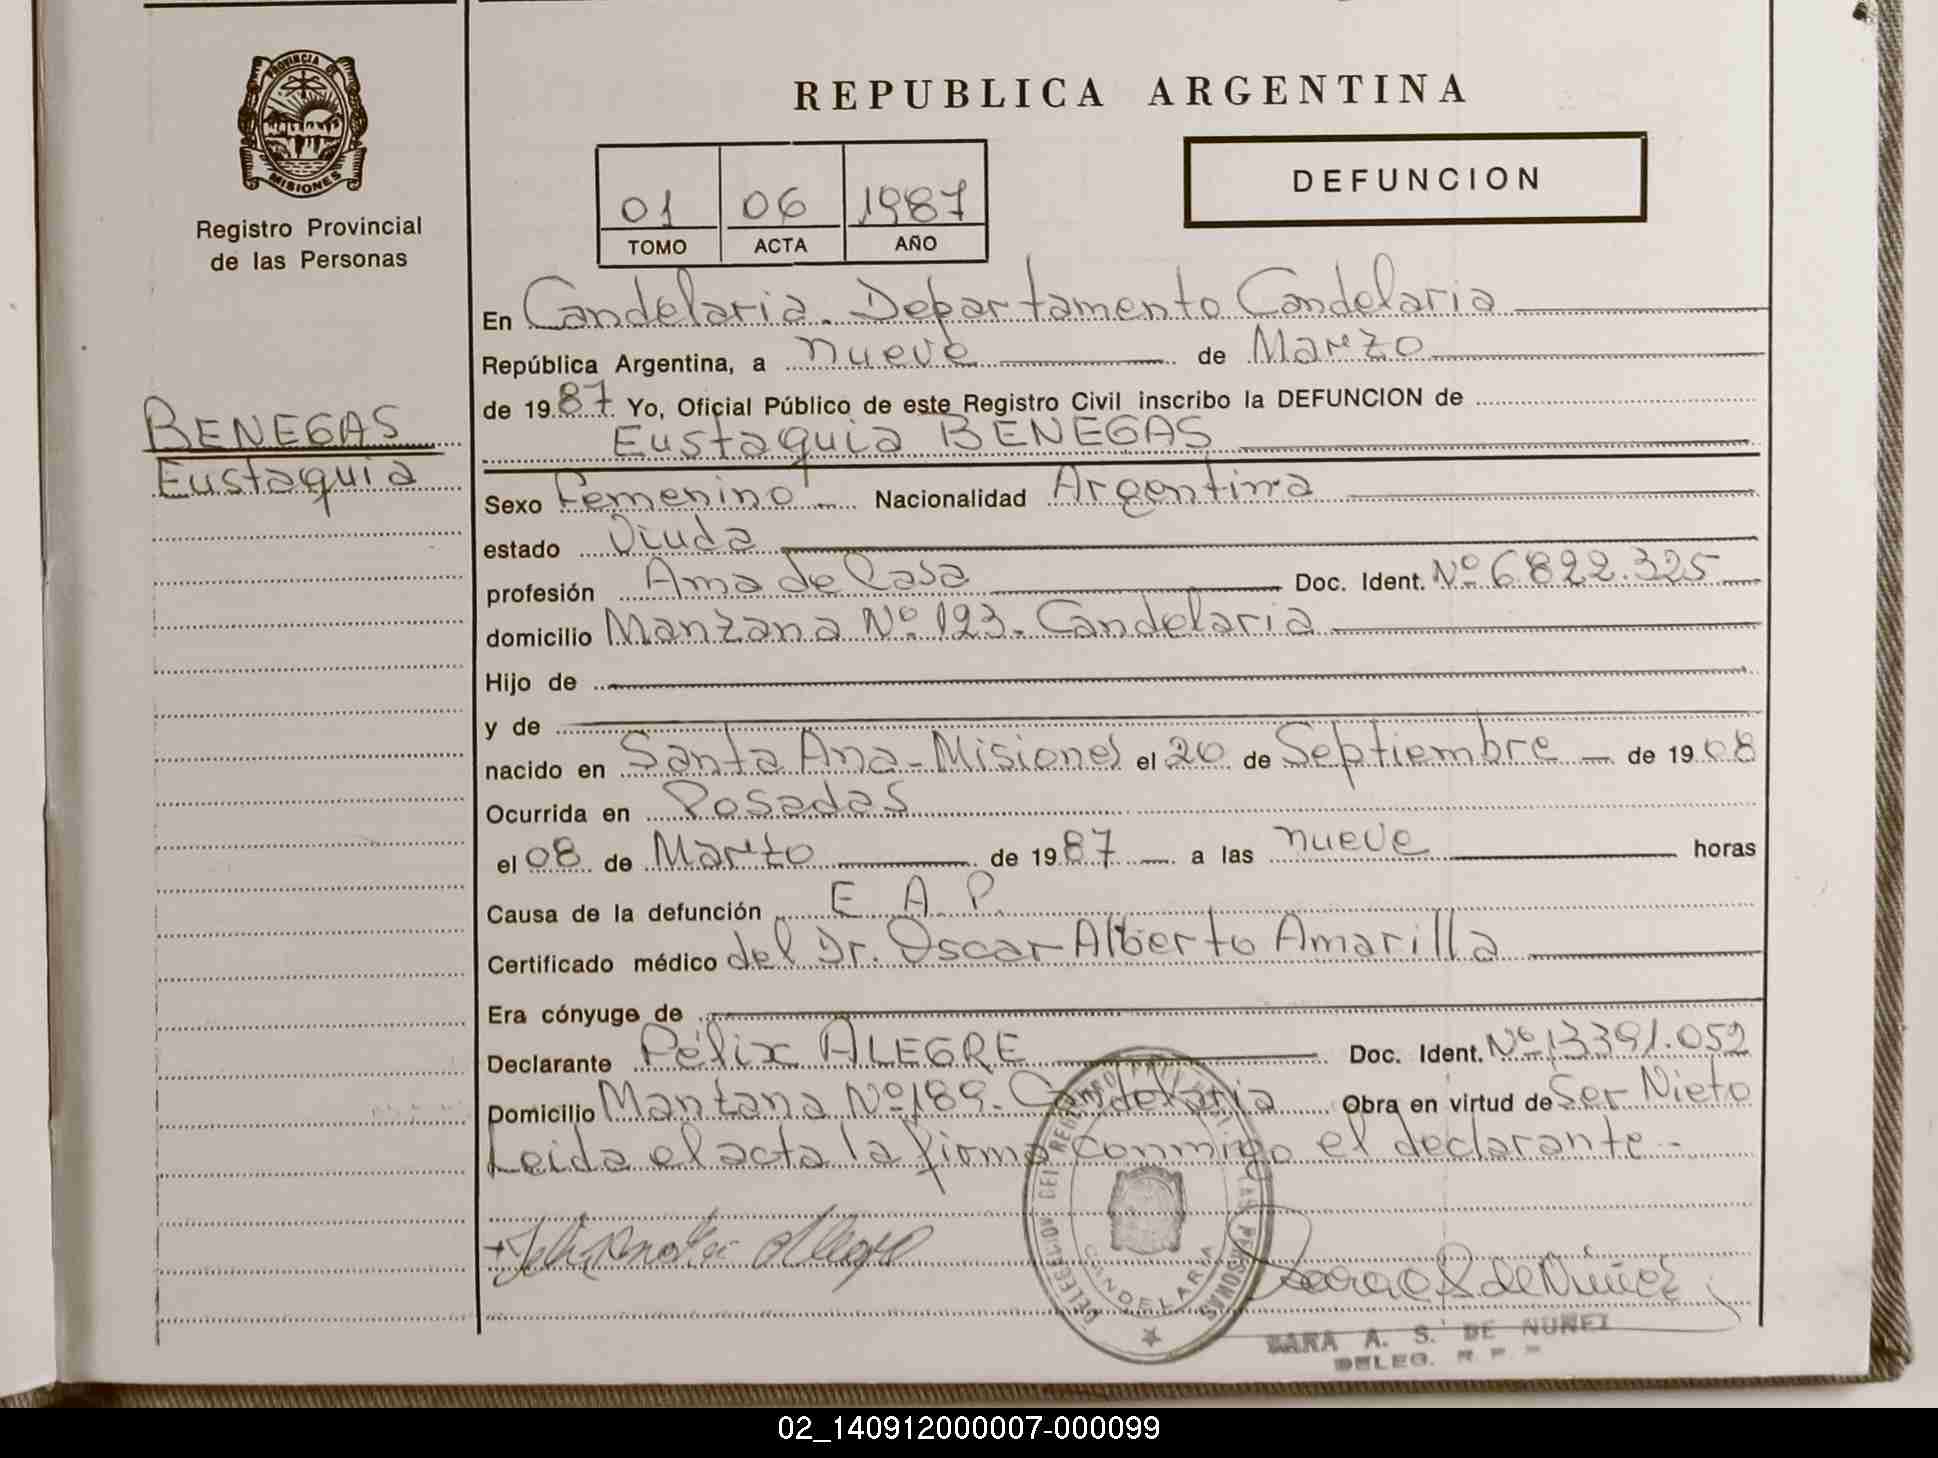 PROVINCIA DE
MISIONES
Registro Provincial
de las Personas
BENEGAS
Eustaquia
REPUBLICA ARGENTINA
01 06 1987
TOMO ACTA AÑO
DEFUNCION
En Candelaria. Departamento Candelaria
República Argentina, a nueve de Marzo
de 1987. Yo, Oficial Público de este Registro Civil inscribo la DEFUNCION de
Eustaquia BENEGAS
Sexo Femenino Nacionalidad Argentina
estado Viuda
profesión Ama de Casa Doc. Ident. Nº 6.822.325
domicilio Manzana Nº 193. Candelaria
Hijo de
y de
nacido en Santa Ana - Misiones el 20 de Septiembre de 1908
Ocurrida en Posadas
el 08 de Marzo de 1987 a las nueve horas
Causa de la defunción E A P.
Certificado médico del Dr. Oscar Alberto Amarilla
Era cónyuge de
Declarante Félix ALEGRE Doc. Ident. Nº 13391.052
Domicilio Manzana Nº 189. Candelaria Obra en virtud de Ser Nieto
Leida el acta la firma conmigo el declarante.-
DELEGACION DEL REGISTRO PROVINCIAL DE LAS PERSONAS
CANDELARIA
Sara A S de Núñez
SARA A. S. DE NUÑEZ
DELEG. R. P. P.
02_140912000007-000099